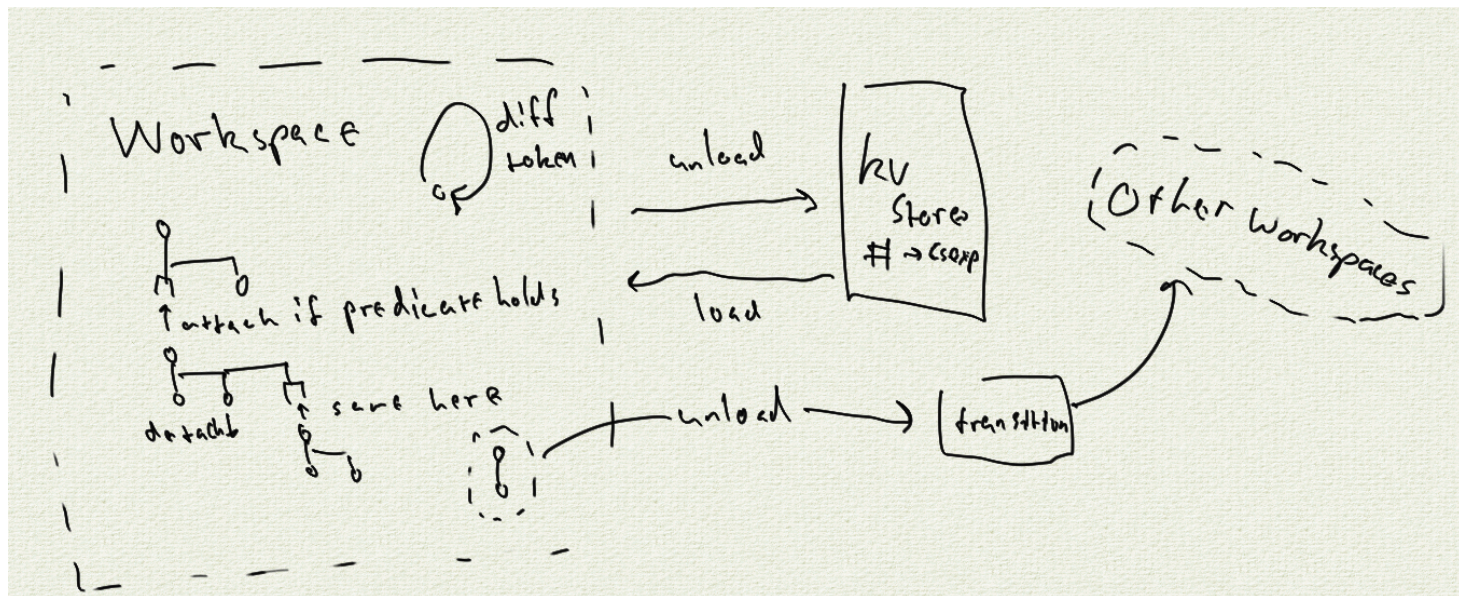 Workspace
diff
token
unload
kv
Store
# → csexp
load
Other Workspaces
attach if predicate holds
same here
detach
unload
transition